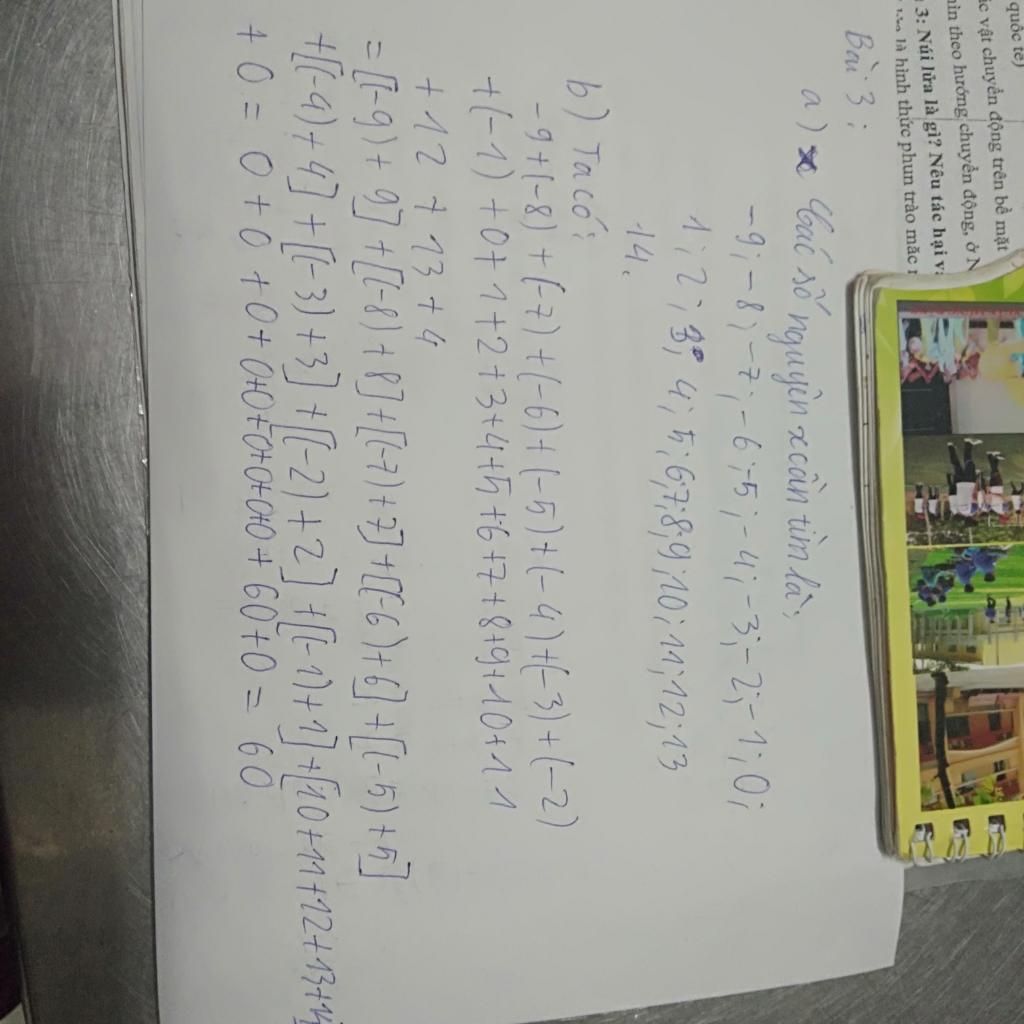 quốc tế)
vật chuyển động trên bề mặt
theo hướng chuyển động, ở
3: Núi lửa là gì? Nêu tác hại
là hình thức phun trào mắc
Bài 3:
a) Các số nguyên x cần tìm là:
-9; -8; -7; -6; -5; -4; -3; -2; -1; 0;
1; 2; 3; 4; 5; 6; 7; 8; 9; 10; 11; 12; 13
14.
b) Ta có:
-9+(-8)+(-7)+(-6)+(-5)+(-4)+(-3)+(-2)
+(-1)+0+1+2+3+4+5+6+7+8+9+10+11
+12+13+4
=[(-9)+9]+[(-8)+8]+[(-7)+7]+[(-6)+6]+[(-5)+5]
+[(-4)+4]+[(-3)+3]+[(-2)+2]+[(-1)+1]+[10+11+12+13+14
+0=0+0+0+0+0+0+0+0+0+60+0=60